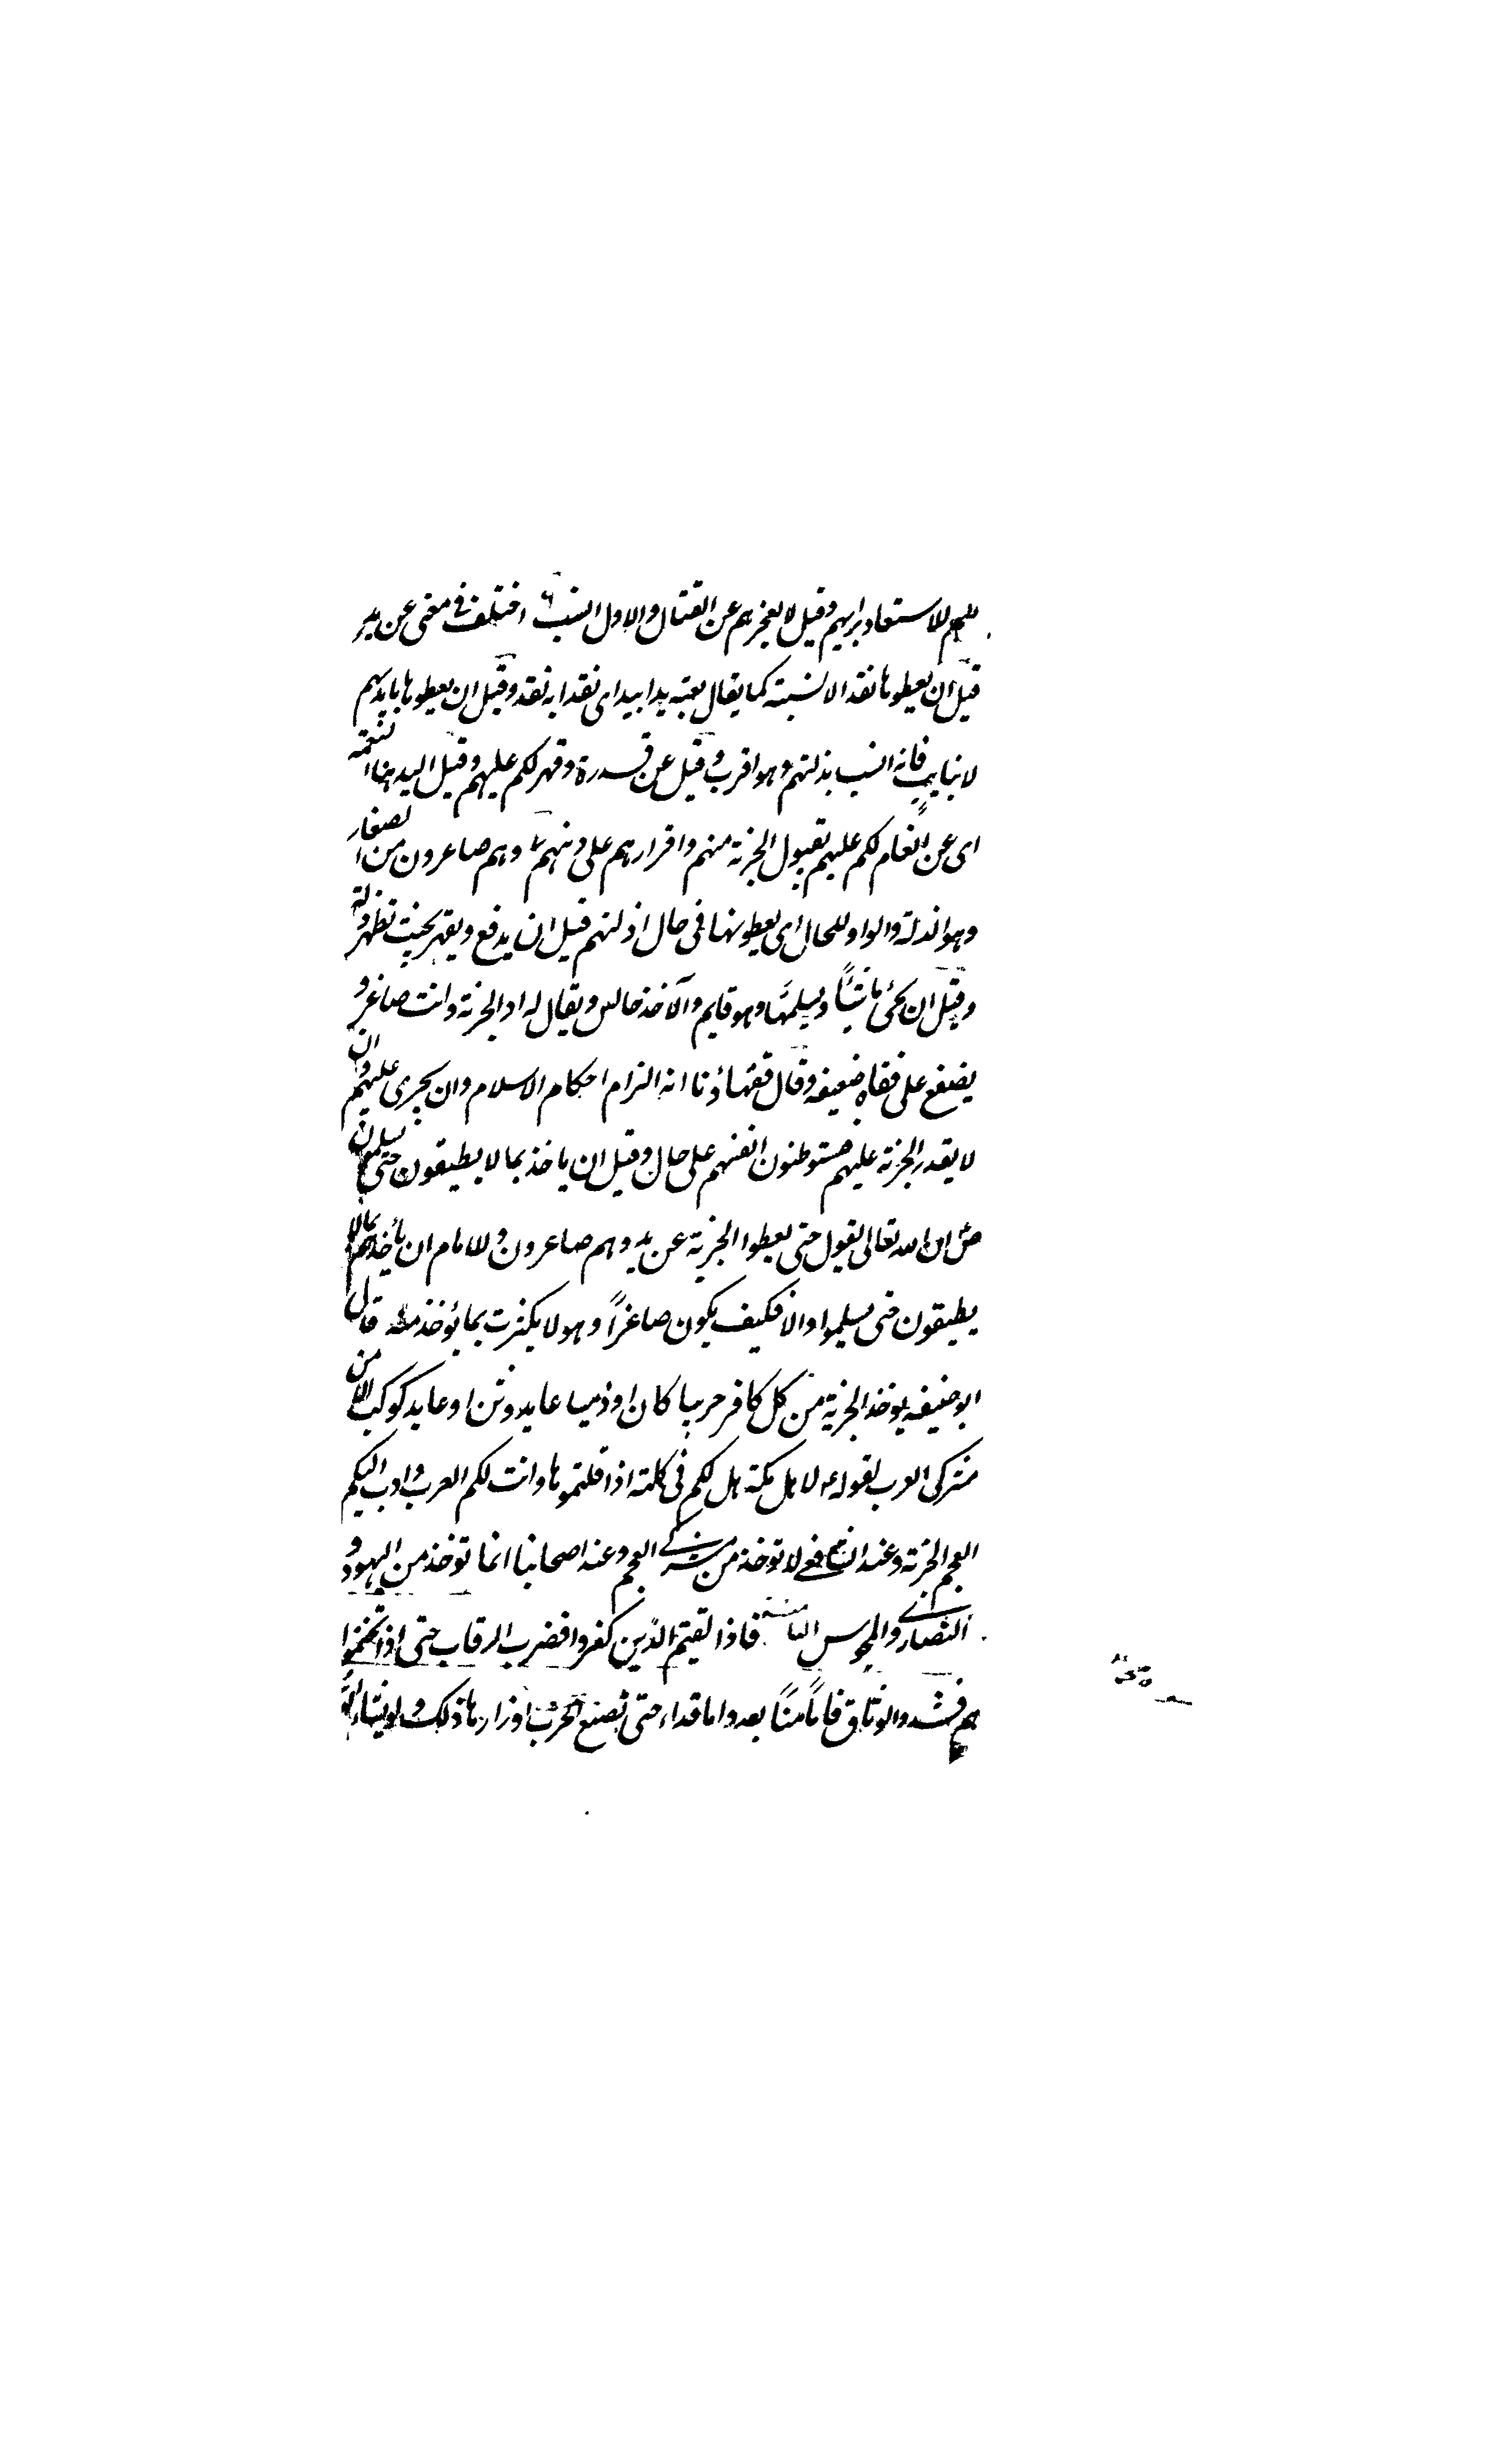 للاستعاد برايهم وقيل لا لعجزهم عن القتال والاول انسب اختلف في معنى عن يد
قيل ان يعطوها نقدا لا نسيئة كما يقال بعته يدا بيد اى نقدا بنقد وقيل ان يعطوها بايديهم
لا بنايب فانه انسب بذلتهم وهو اقرب وقيل عن قدرة وقهر لكم عليهم وقيل اليد هنا النعمة
اى عن انعام لكم عليهم بقبول الجزية منهم واقرارهم على دينهم وهم صاغرون من الصغار
وهو الذلة والواو للحال اى يعطونها في حال اذلتهم قيل ان يدفع ويقهر بحيث تظهر ذلته
وقيل ان يجئ ماشيًا ويسلمها وهو قايم والآخذ جالس ويقال له اد الجزية وانت صاغر و
يصفع على قفاه ضعيفه وقال فقهاؤنا انه التزام احكام الاسلام وان يجرى عليهم وان
لا يقدر الجزية عليهم فيوطنون انفسهم على حال وقيل ان ياخذ بما لا يطيقون حتى يسلمون
ان الله تعالى يقول حتى يعطوا الجزية عن يد وهم صاغرون وللامام ان يأخذهم بما لا
يطيقون حتى يسلموا والا فكيف يكون صاغرًا وهو لا يكترث بما يؤخذ منه قال
ابو حنيفه يوخذ الجزية من كل كافر حربيا كان او ذميا عابد وثن او عابد كوكب الا من
مشركى العرب لقوله لاهل مكة هل لكم في كلمة اذا قلتموها دانت لكم العرب وادت اليكم
العجم الجزية وعند الشافعي لا توخذ من مشركي العجم وعند اصحابنا انما توخذ من اليهود و
النصارى والمجوس الثامنة فاذا لقيتم الذين كفروا فضرب الرقاب حتى اذا اثخنتموا
هم فشدوا الوثاق فامّا منًّا بعد واما فداء حتى تضع الحرب اوزارها ذلك ولو يشاء الله